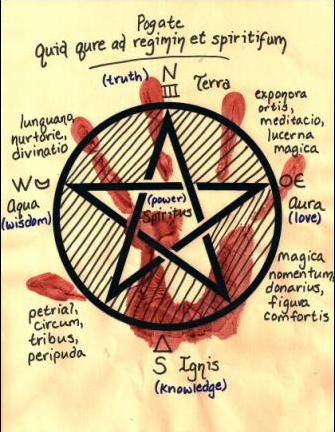 Pogate
Quid qure ad regimin et spiritifum
(truth) N Terra
III
exponora
ortis,
meditacio,
lucerna
magica
lunguano,
nurtorie,
divinatio
W
Aqua
(wisdom)
(power)
Spiritus
E
Aura
(love)
magica
nomentum,
donarius,
figura
comfortis
petria?,
circum,
tribus,
peripuda
S Ignis
(Knowledge)